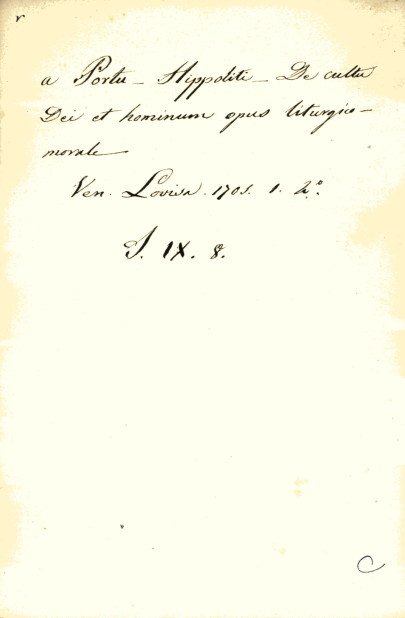 r
a Portu - Hippoliti - De cultu
Dei et hominum opus liturgico-
morale
Ven. Lovisa. 1701. 1. 4.º
S. IX. 8.
C